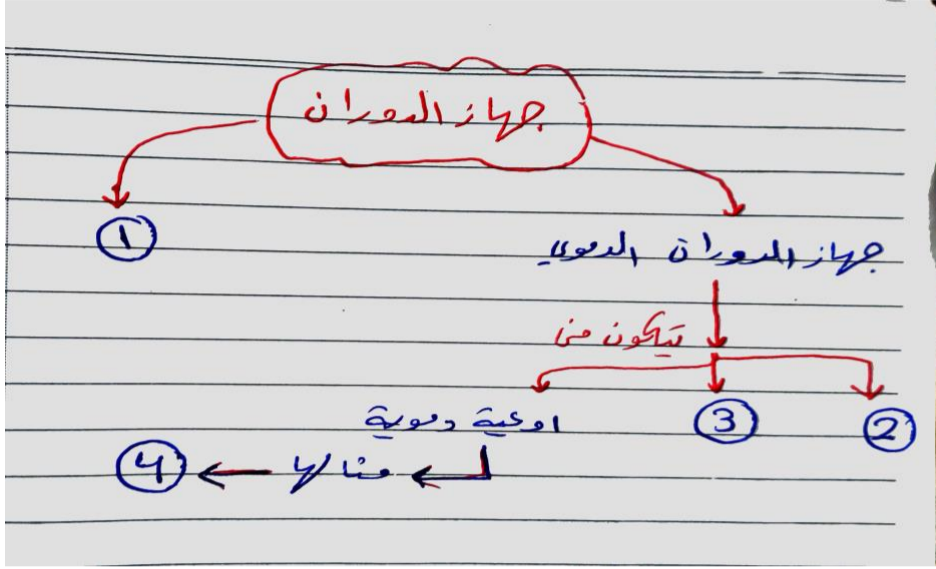 جهاز الدوران
1
جهاز الدوران الدموي
يتكون من
2
3
اوعية دموية
مثالها
4